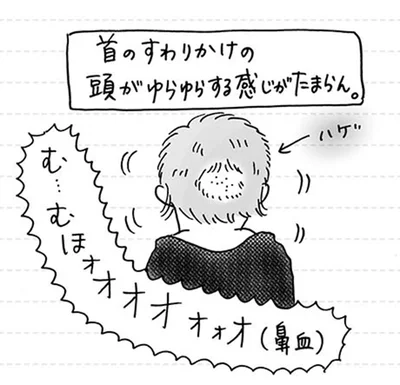 首のすわりかけの
頭がゆらゆらする感じがたまらん。
ハゲ
む…むほォオオオォォオ(鼻血)